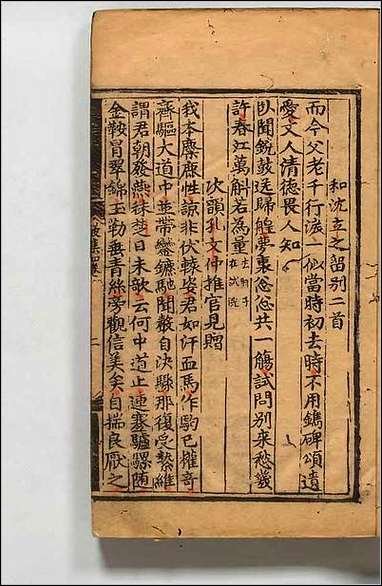 和沈立之留別二首
而今父老千行淚一似當時初去時不用鐫碑頌遺
愛丈人清德畏人知
臥聞鐃鼓送歸艎夢裏怱怱共一觴試問別來愁幾
許春江萬斛若為量
次韻孔文仲推官見贈
我本麋鹿性諒非伏轅姿君如汗血馬作駒已權奇
齊驅大道中並帶鑾鑣馳聞聲自決驟那復受縶維
謂君朝發燕秣楚日未欹云何中道止連蹇驢騾隨
金鞍冒翠錦玉勒垂青絲旁觀信美矣自揣良厭之